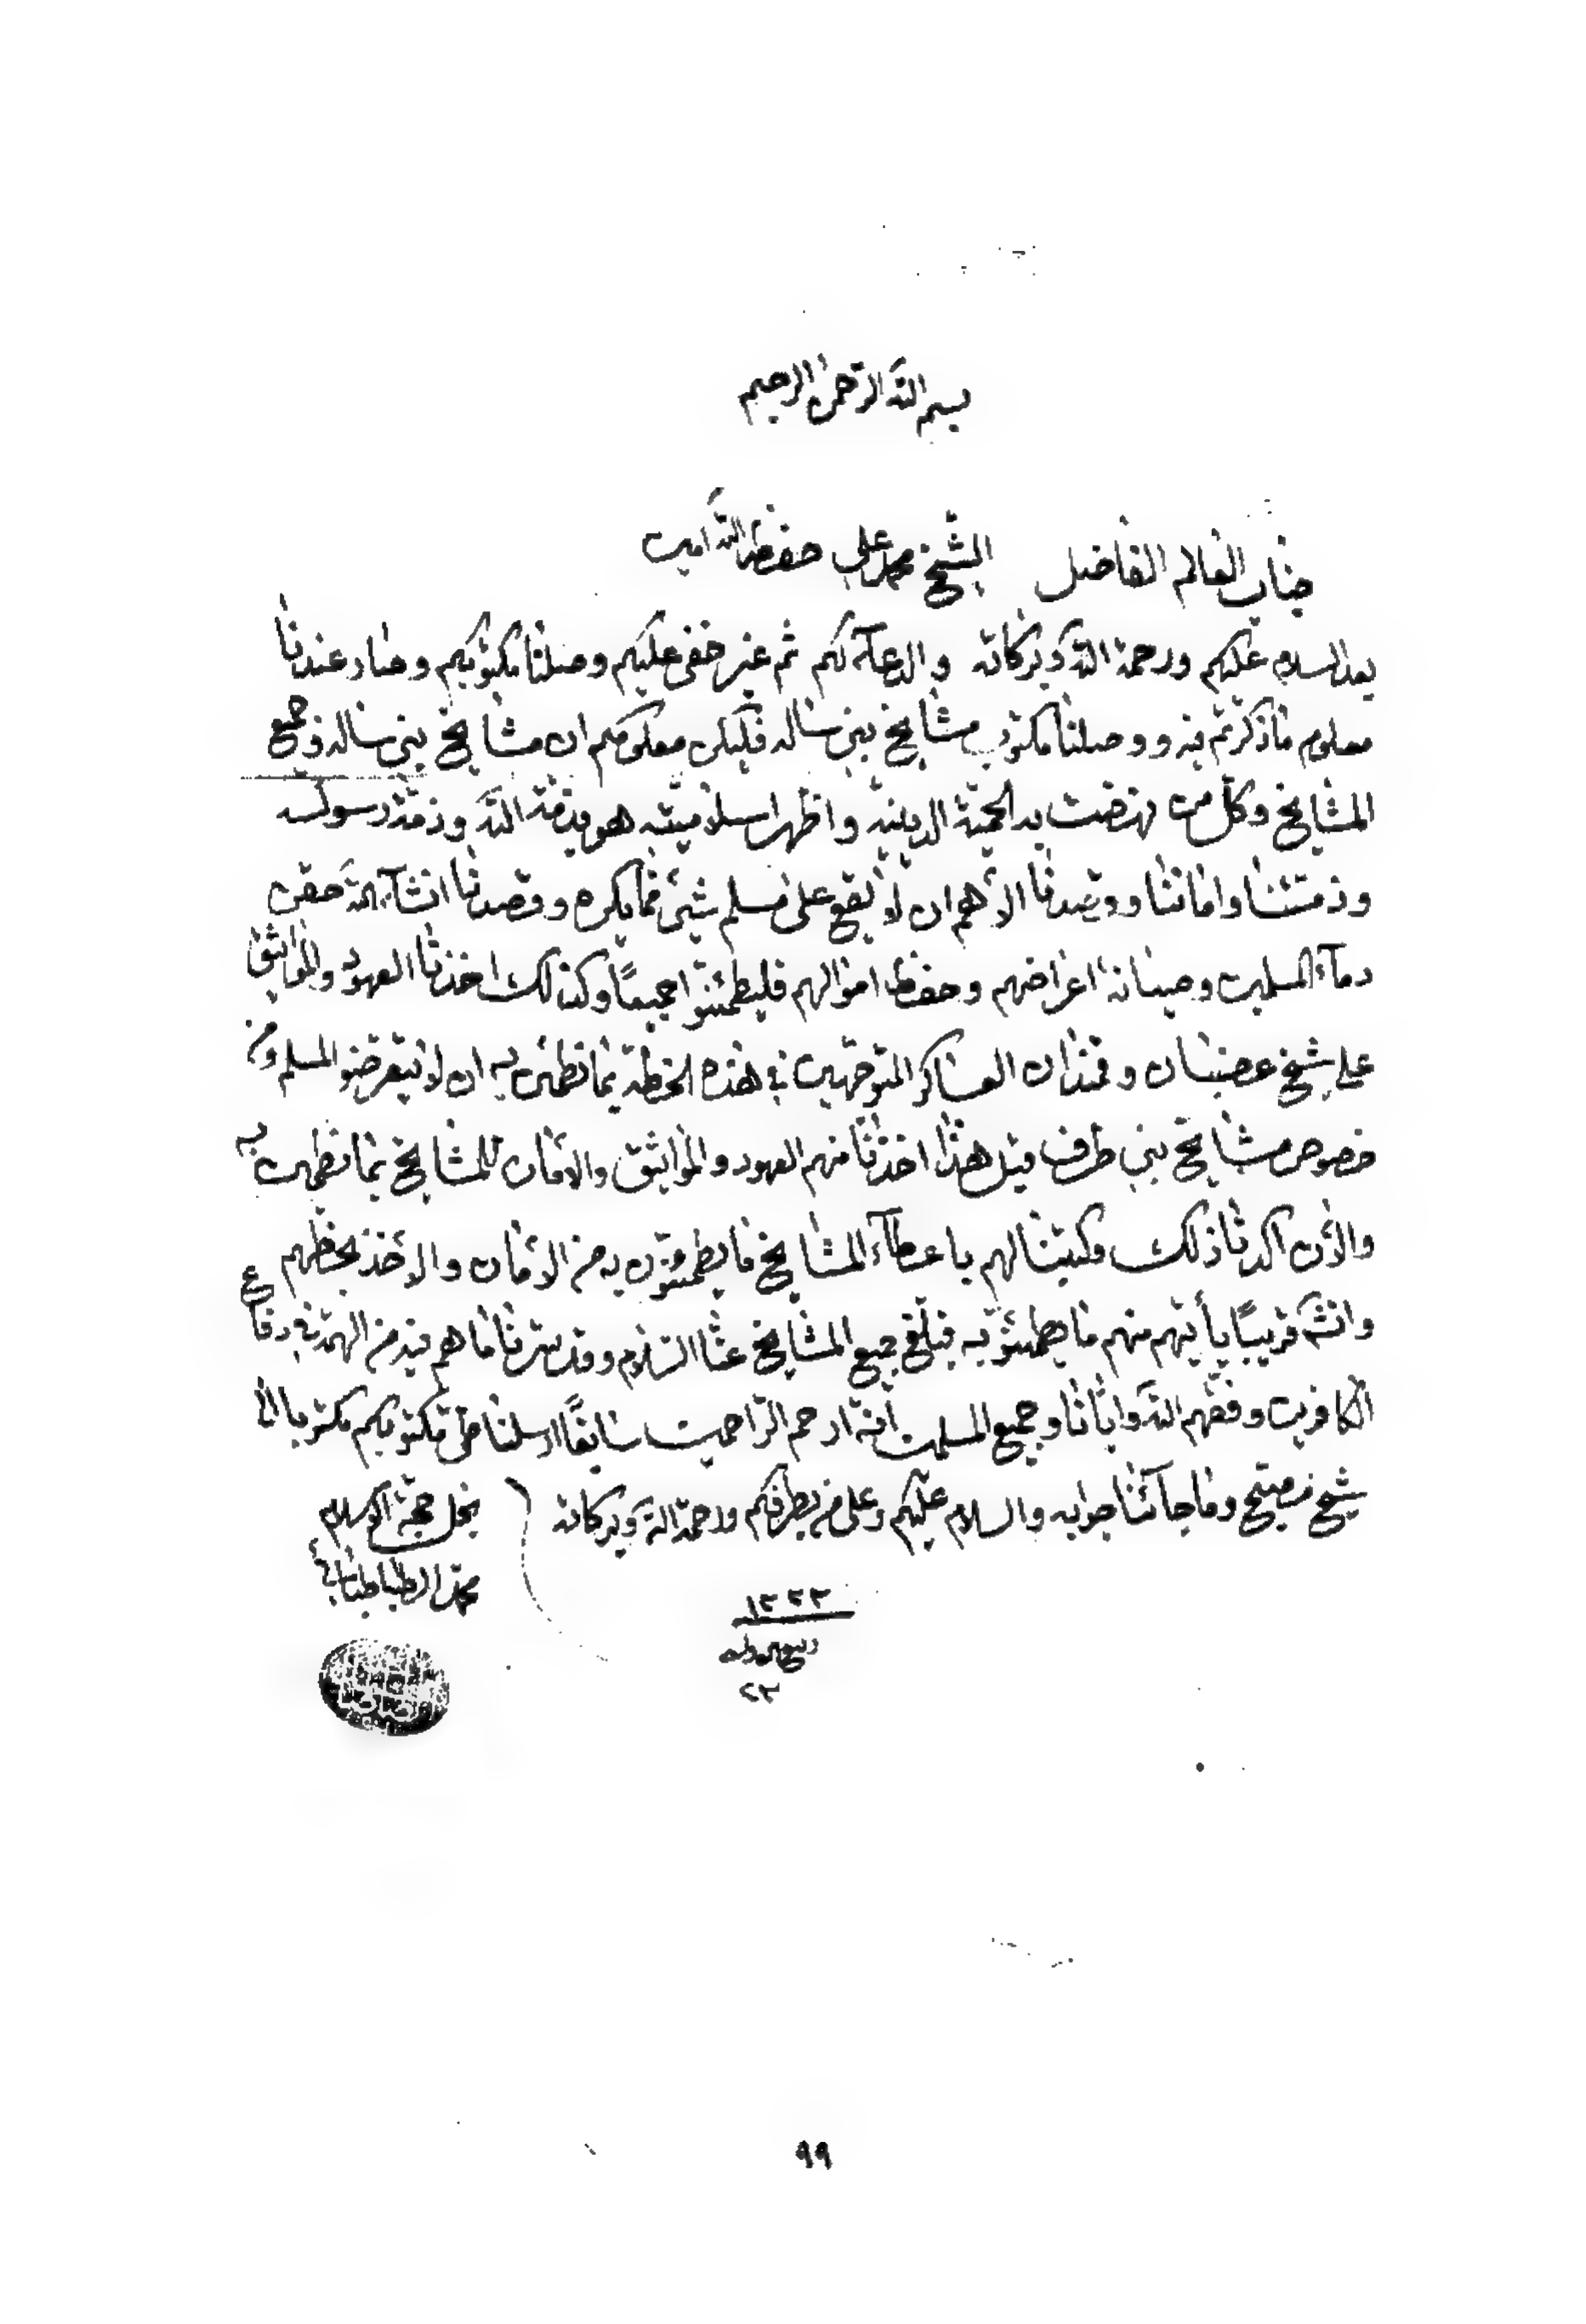 بسم الله الرحمن الرحيم
جناب العالم الفاضل الشيخ محمد علي حفظه الله امين
بعد السلام عليكم ورحمة الله وبركاته والدعآء لكم ثم غير خفى عليكم وصلنا مكتوبكم وصار عندنا
معلوم ما ذكرتم فيه ووصلنا مكتوب مشايخ بنى ساله فليكن معلومكم ان مشايخ بنى ساله وجميع
المشايخ وكل من نهضت به الحمية الدينية واظهر اسلاميته هو بذمة الله وذمة رسوله
وذمتنا واماننا وقصدنا الأهم ان لا يقع على مسلم شيئ مما يكره وقصدنا انشآء الله حقن
دمآء المسلمين وصيانة اعراضهم وحفظ اموالهم فليطمئنوا جميعًا وكذلك اخذنا العهود والمواثيق
على شيخ عضبان وقمندان العساكر المتوجهين في هذه الخطة بما نطمئن به ان لا يتعرضوا لمسلم ومن
خصوص مشايخ بني طرف قبل هذا اخذنا منهم العهود والمواثيق والامان للمشايخ بما نطمئن به
والأن اكدنا ذلك وكتبنا لهم باعطآء المشايخ ما يطمئنون به من الأمان والاخذ بحظهم
وانشآء قريبًا يأتيهم منهم ما يطمئنوا به فبلغ جميع المشايخ عنا السلام وقد سرنا ما هم فيه من الهمة في دفاع
الكافرين وفقهم الله وايانا وجميع المسلمين انه ارحم الراحمين سابقًا ارسلنا طى مكتوبكم مكتوبا الى
شيخ مصبح وما جائنا جوابه والسلام عليكم وعلى من بطرفكم ورحمة الله وبركاته
نجل حجة الاسلام
محمد الطباطبائي
١٣٣٣
ربيع
٢٣
٩٩